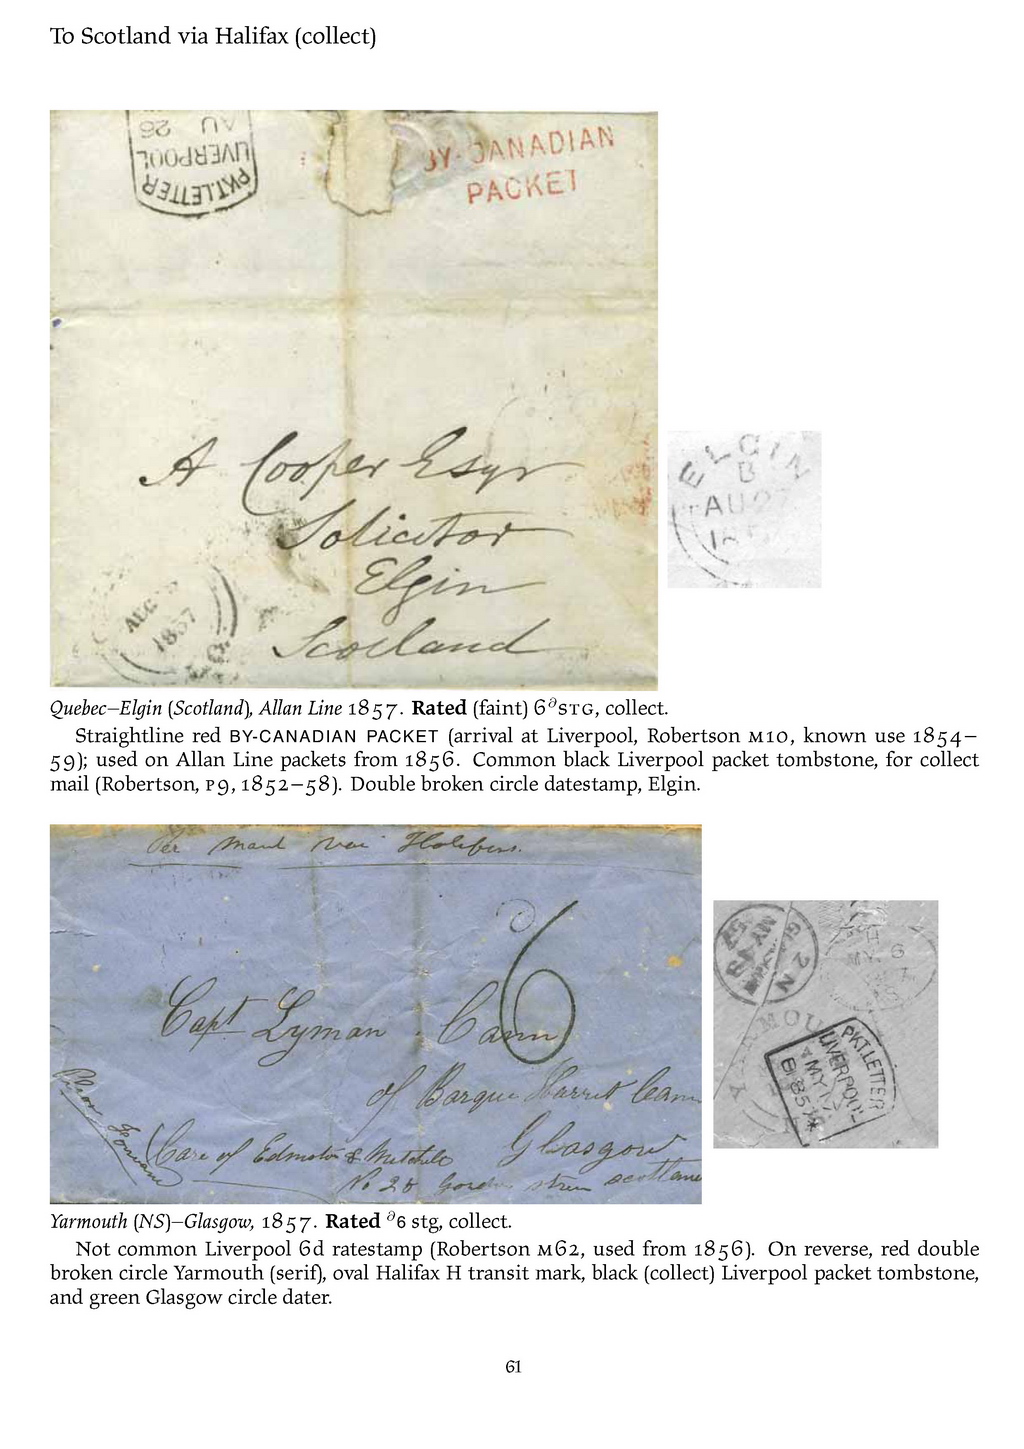 To Scotland via Halifax (collect)
AU 26
LIVERPOOL
PKT.LETTER
BY-CANADIAN
PACKET
A Cooper Esqr
Solicitor
Elgin
Scotland
AUG
1857
ELGIN
B
AU 27
Quebec–Elgin (Scotland), Allan Line 1857. Rated (faint) 6∂STG, collect.
Straightline red BY-CANADIAN PACKET (arrival at Liverpool, Robertson M10, known use 1854–
59); used on Allan Line packets from 1856. Common black Liverpool packet tombstone, for collect
mail (Robertson, P9, 1852–58). Double broken circle datestamp, Elgin.
Per Mail via Halifax
6
Capt Lyman Cann
of Barque Harriet Cann
Glasgow
Care of Edmoton & Mitchile
No 20 Gordon Scotland
H
MY 6
PKT.LETTER
LIVERPOOL
MY
Yarmouth (NS)–Glasgow, 1857. Rated ∂6 stg, collect.
Not common Liverpool 6d ratestamp (Robertson M62, used from 1856). On reverse, red double
broken circle Yarmouth (serif), oval Halifax H transit mark, black (collect) Liverpool packet tombstone,
and green Glasgow circle dater.
61